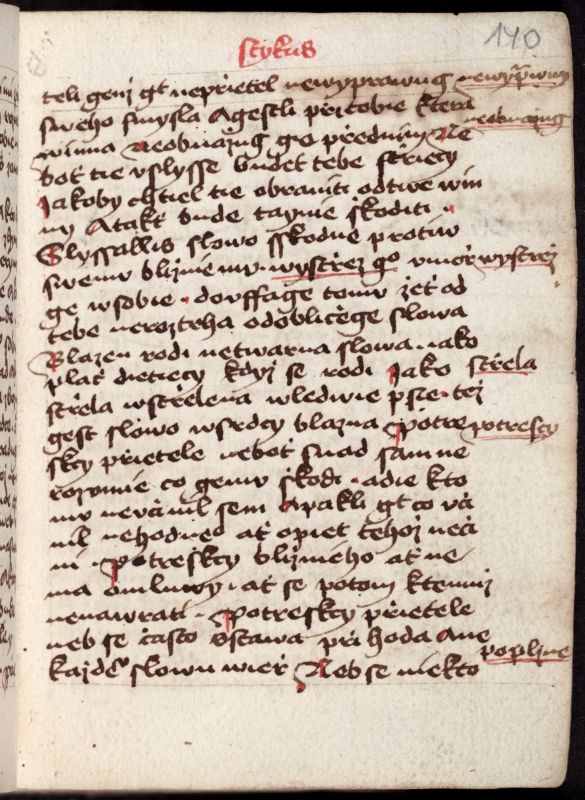 Stykus
140
teli geni gt neprietel newyprawug newyprawug
sweho smysla Agestli przi tobie ktera
winna Neobnažug go předním Ne neobnažug
bot tie uslysse budet tebe střiecy
Jakoby chtiel tie obraniti odtwe win
ny Atakt bude taynie škoditi
Slyssallis slowo sskodne protiw
swemu bližniemu wystřez go umořz wystřez
ge w sobie douffage tomu žeť od
tebe neroztrha odobličege slowa
Blazen rodi netwarna slowa yako
plač dietiecy když se rodi Jako střela střela
střela wstřelena wledwie psie tež
gest slowo wsrdcy blazna Potře potrescy
skcy přietele neboť snad sam ne
rozomie co gemu škodi adie kto
mu neučinil sem Apakli gt co uči
nil nehodneo at opiet tehož neči
ni Potreskcy bližnieho at ne
ma omluwy at se potom ktemuž
nenawrati Potreskcy přietele
neb se často ostawa přihoda Ane
každeo slowu wěř Neb se niekto popline